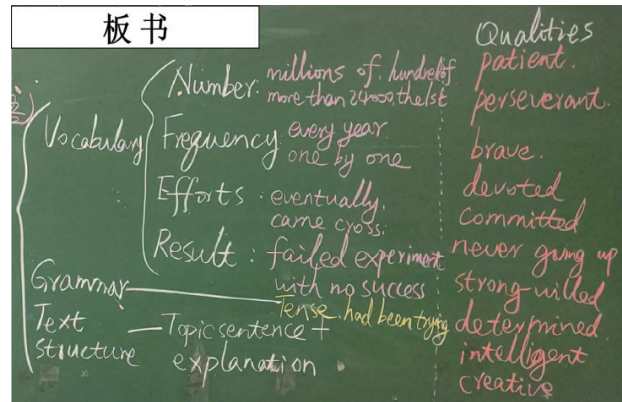 板书
Number: millions of. hundred of
more than 24000 the 1st
Vocabulary
Frequency every year
one by one
Efforts: eventually.
came cross.
Result: failed experiment
with no success
Grammar
Tense. had been trying
Text
structure
Topic sentence +
explanation
Qualities
patient.
perseverant.
brave.
devoted
committed
never giving up
strong-willed
determined.
intelligent
creative